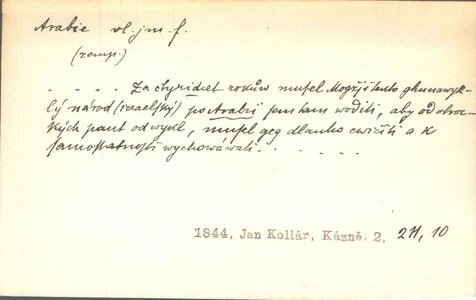 Arabie vl. jm. f.
(zemp.)
. . . . Za čtyridcet rokůw musel Mogžjš tento
lý národ (izraelský) po Arabii sem tam woditi, aby od otroc-
kých paut odwykl, musel geg dlauho cwičiti a k
samostatnosti wychowáwati . . . . . .
1844, Jan Kollár, Kázně. 2, 271, 10